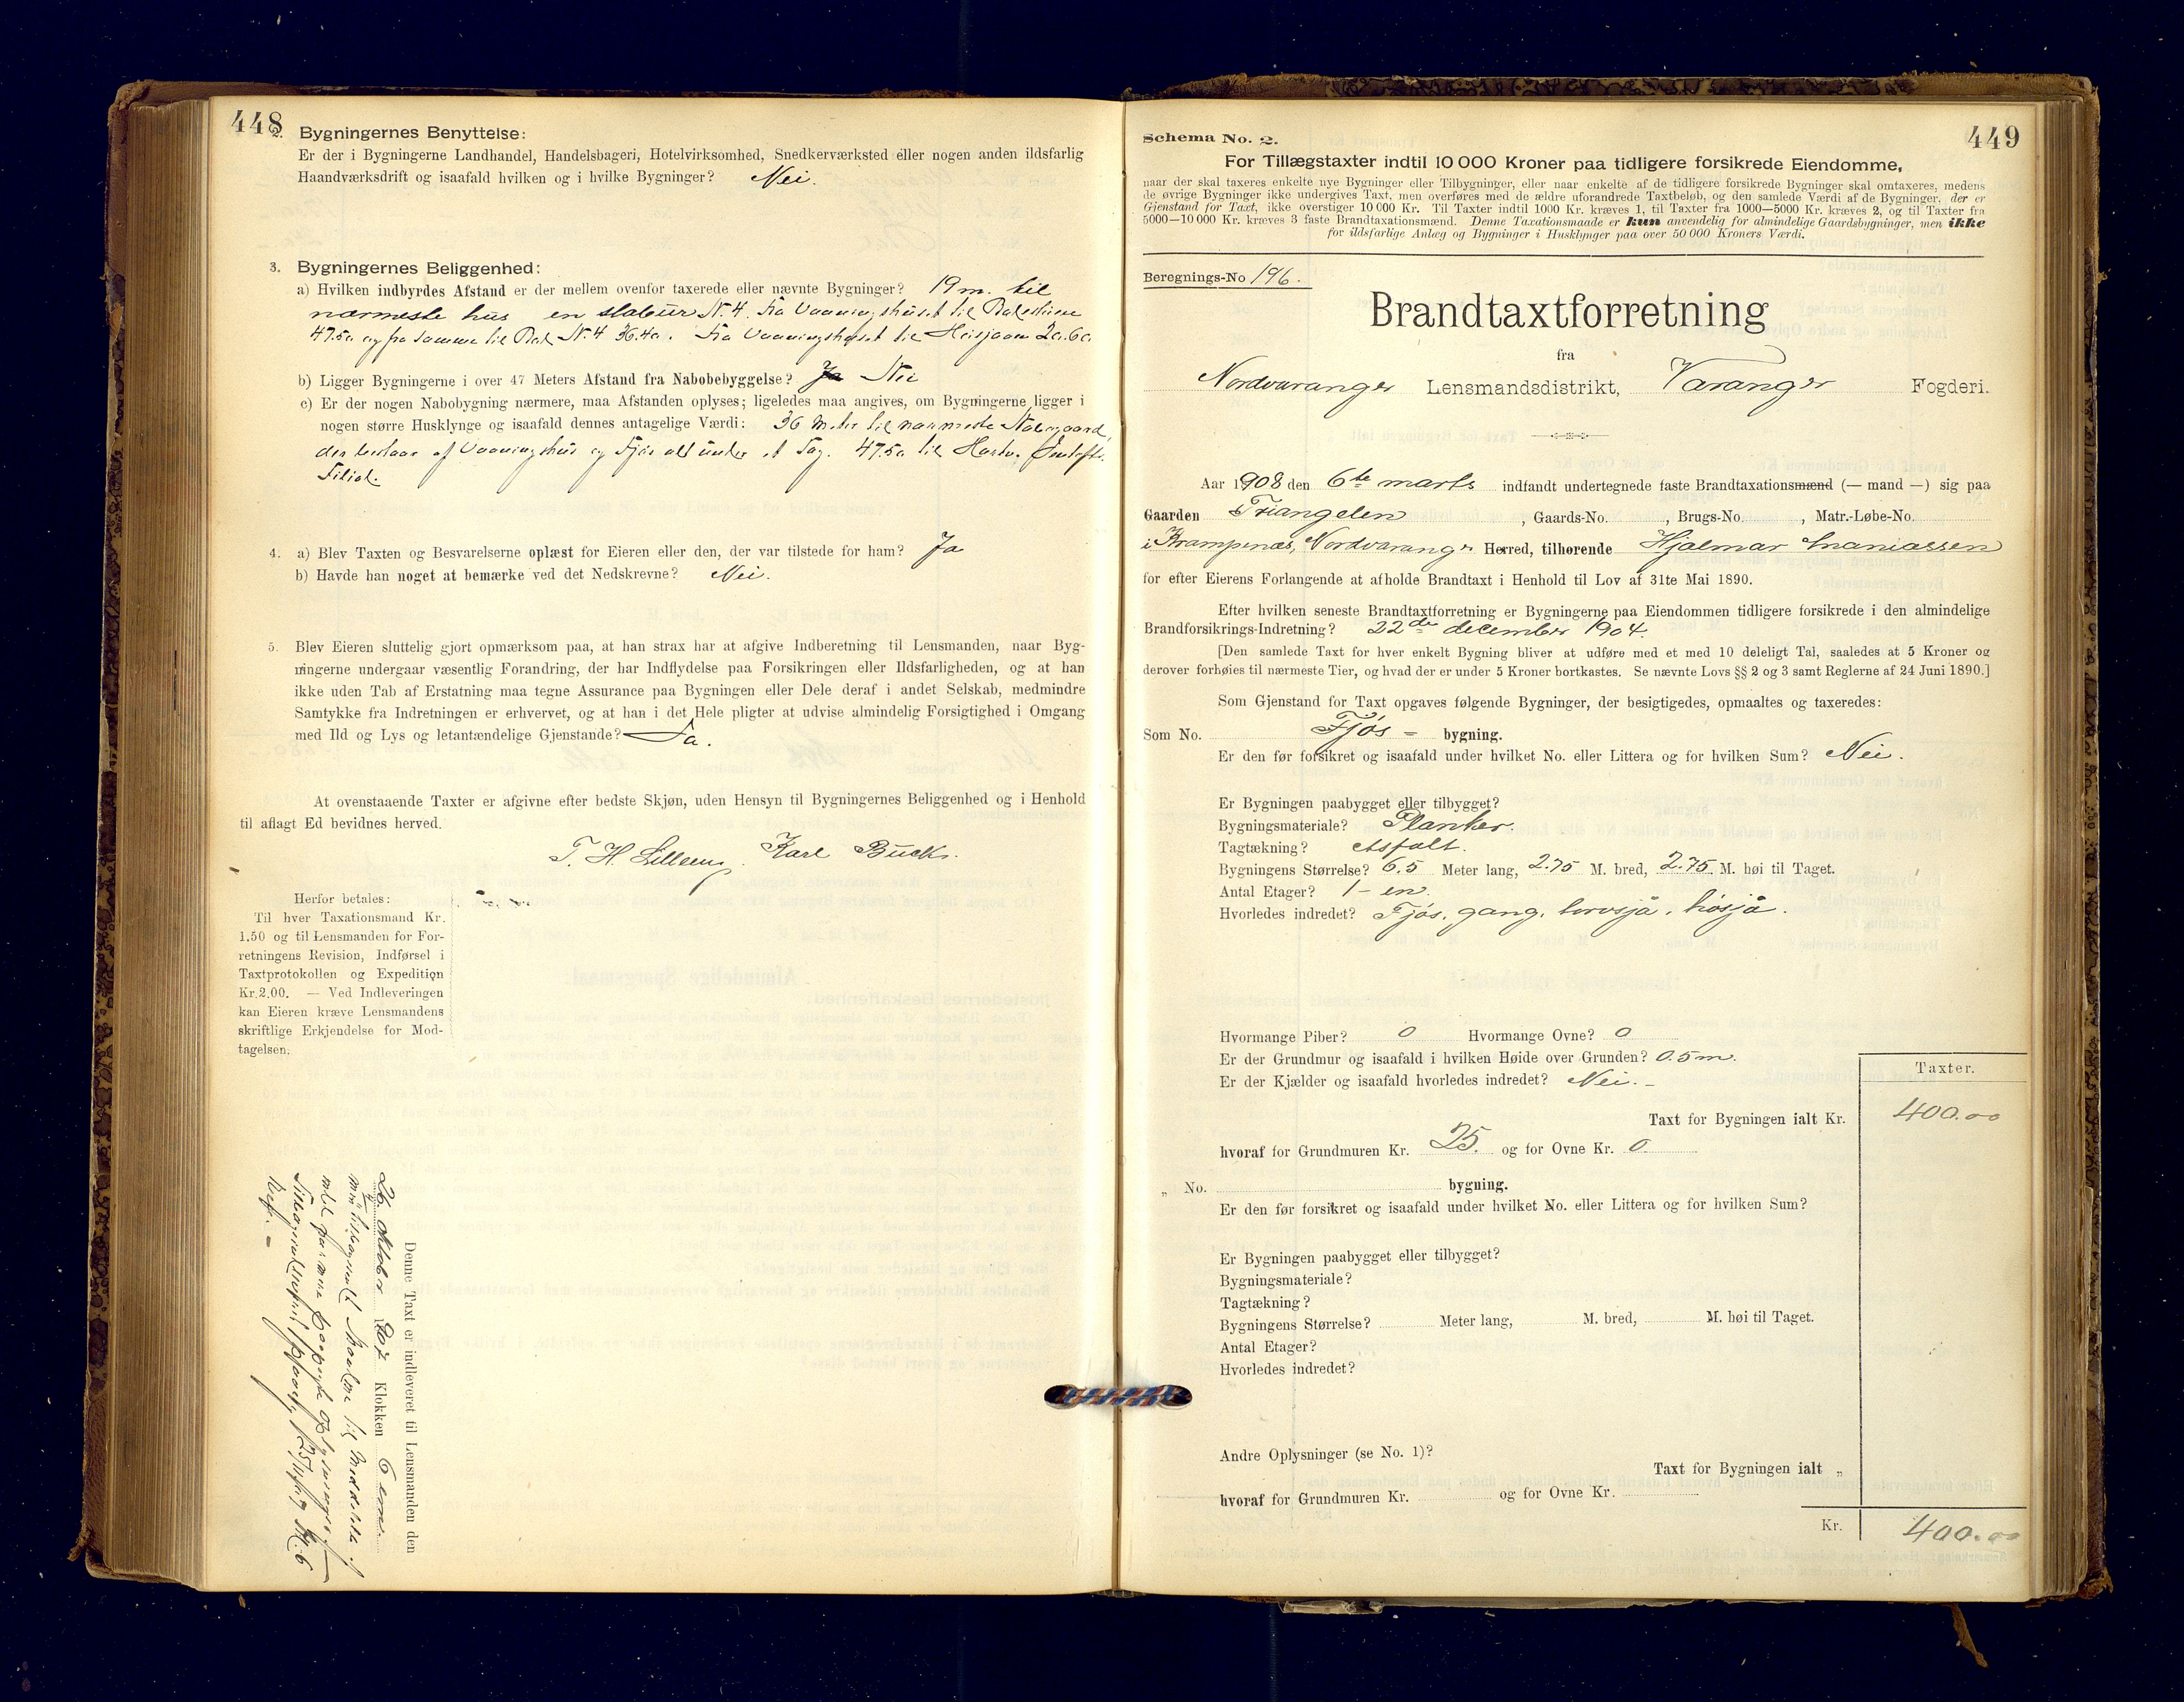 448
2. Bygningernes Benyttelse:
Er der i Bygningerne Landhandel, Handelsbageri, Hotelvirksomhed, Snedkerværksted eller nogen anden ildsfarlig
Haandværksdrift og isaafald hvilken og i hvilke Bygninger? Nei.
3. Bygningernes Beliggenhed:
a) Hvilken indbyrdes Afstand er der mellem ovenfor taxerede eller nævnte Bygninger? 19 m. til
nærmeste hus en stabur N. 4. Fra Vaaningshuset til
47.50 og fra samme til N. 4 36.40. Fra Vaaningshuset til 20.60
b) Ligger Bygningerne i over 47 Meters Afstand fra Nabobebyggelse? Ja Nei
c) Er der nogen Nabobygning nærmere, maa Afstanden oplyses; ligeledes maa angives, om Bygningerne ligger i
nogen større Husklynge og isaafald dennes antagelige Værdi: 36 meter til nærmeste Nabogaard,
der bestaar af Vaaningshus og Fjøs alt under et Tag. 47.50 til
Filial.
4. a) Blev Taxten og Besvarelserne oplæst for Eieren eller den, der var tilstede for ham? Ja
b) Havde han noget at bemærke ved det Nedskrevne? Nei.
5. Blev Eieren sluttelig gjort opmærksom paa, at han strax har at afgive Indberetning til Lensmanden, naar Byg-
ningerne undergaar væsentlig Forandring, der har Indflydelse paa Forsikringen eller Ildsfarligheden, og at han
ikke uden Tab af Erstatning maa tegne Assurance paa Bygningen eller Dele deraf i andet Selskab, medmindre
Samtykke fra Indretningen er erhvervet, og at han i det Hele pligter at udvise almindelig Forsigtighed i Omgang
med Ild og Lys og letantændelige Gjenstande? Ja.
At ovenstaaende Taxter er afgivne efter bedste Skjøn, uden Hensyn til Bygningernes Beliggenhed og i Henhold
til aflagt Ed bevidnes herved.
T. H. Karl Buck.
Herfor betales:
Til hver Taxationsmand Kr.
1.50 og til Lensmanden for For-
retningens Revision, Indførsel i
Taxtprotokollen og Expedition
Kr. 2.00. — Ved Indleveringen
kan Eieren kræve Lensmandens
skriftlige Erkjendelse for Mod-
tagelsen.
Denne Taxt er indleveret til Lensmanden den
26 oktober 1907 Klokken 6 em.
449
Schema No. 2.
For Tillægstaxter indtil 10 000 Kroner paa tidligere forsikrede Eiendomme,
naar der skal taxeres enkelte nye Bygninger eller Tilbygninger, eller naar enkelte af de tidligere forsikrede Bygninger skal omtaxeres, medens
de øvrige Bygninger ikke undergives Taxt, men overføres med de ældre uforandrede Taxtbeløb, og den samlede Værdi af de Bygninger, der er
Gjenstand for Taxt, ikke overstiger 10 000 Kr. Til Taxter indtil 1000 Kr. kræves 1, til Taxter fra 1000—5000 Kr. kræves 2, og til Taxter fra
5000—10 000 Kr. kræves 3 faste Brandtaxationsmænd. Denne Taxationsmaade er kun anvendelig for almindelige Gaardsbygninger, men ikke
for ildsfarlige Anlæg og Bygninger i Husklynger paa over 50 000 Kroners Værdi.
Beregnings-No 196.
Brandtaxtforretning
fra
Nordvaranger Lensmandsdistrikt, Varanger Fogderi.
Aar 1908 den 6te marts indfandt undertegnede faste Brandtaxationsmænd (— mand —) sig paa
Gaarden Triangelen, Gaards-No. , Brugs-No. , Matr.-Løbe-No.
i Krampenæs, Nordvaranger Herred, tilhørende Hjalmar
for efter Eierens Forlangende at afholde Brandtaxt i Henhold til Lov af 31te Mai 1890.
Efter hvilken seneste Brandtaxtforretning er Bygningerne paa Eiendommen tidligere forsikrede i den almindelige
Brandforsikrings-Indretning? 22de december 1904.
[Den samlede Taxt for hver enkelt Bygning bliver at udføre med et med 10 deleligt Tal, saaledes at 5 Kroner og
derover forhøies til nærmeste Tier, og hvad der er under 5 Kroner bortkastes. Se nævnte Lovs §§ 2 og 3 samt Reglerne af 24 Juni 1890.]
Som Gjenstand for Taxt opgaves følgende Bygninger, der besigtigedes, opmaaltes og taxeredes:
Som No. Fjøs - bygning.
Er den før forsikret og isaafald under hvilket No. eller Littera og for hvilken Sum? Nei.
Er Bygningen paabygget eller tilbygget?
Bygningsmateriale? Planker.
Tagtækning? Asfalt.
Bygningens Størrelse? 6.5 Meter lang, 2.75 M. bred, 2.75 M. høi til Taget.
Antal Etager? 1 - en.
Hvorledes indredet? Fjøs, gang, torvsjå, høsjå.
Hvormange Piber? 0 Hvormange Ovne? 0
Er der Grundmur og isaafald i hvilken Høide over Grunden? 0.5 m.
Er der Kjælder og isaafald hvorledes indredet? Nei. -
Taxter.
Taxt for Bygningen ialt Kr. 400.00
hvoraf for Grundmuren Kr. 25. og for Ovne Kr. 0.
„ No. bygning.
Er den før forsikret og isaafald under hvilket No. eller Littera og for hvilken Sum?
Er Bygningen paabygget eller tilbygget?
Bygningsmateriale?
Tagtækning?
Bygningens Størrelse? Meter lang, M. bred, M. høi til Taget.
Antal Etager?
Hvorledes indredet?
Andre Oplysninger (se No. 1)?
Taxt for Bygningen ialt „
hvoraf for Grundmuren Kr. og for Ovne Kr.
Kr. 400.00